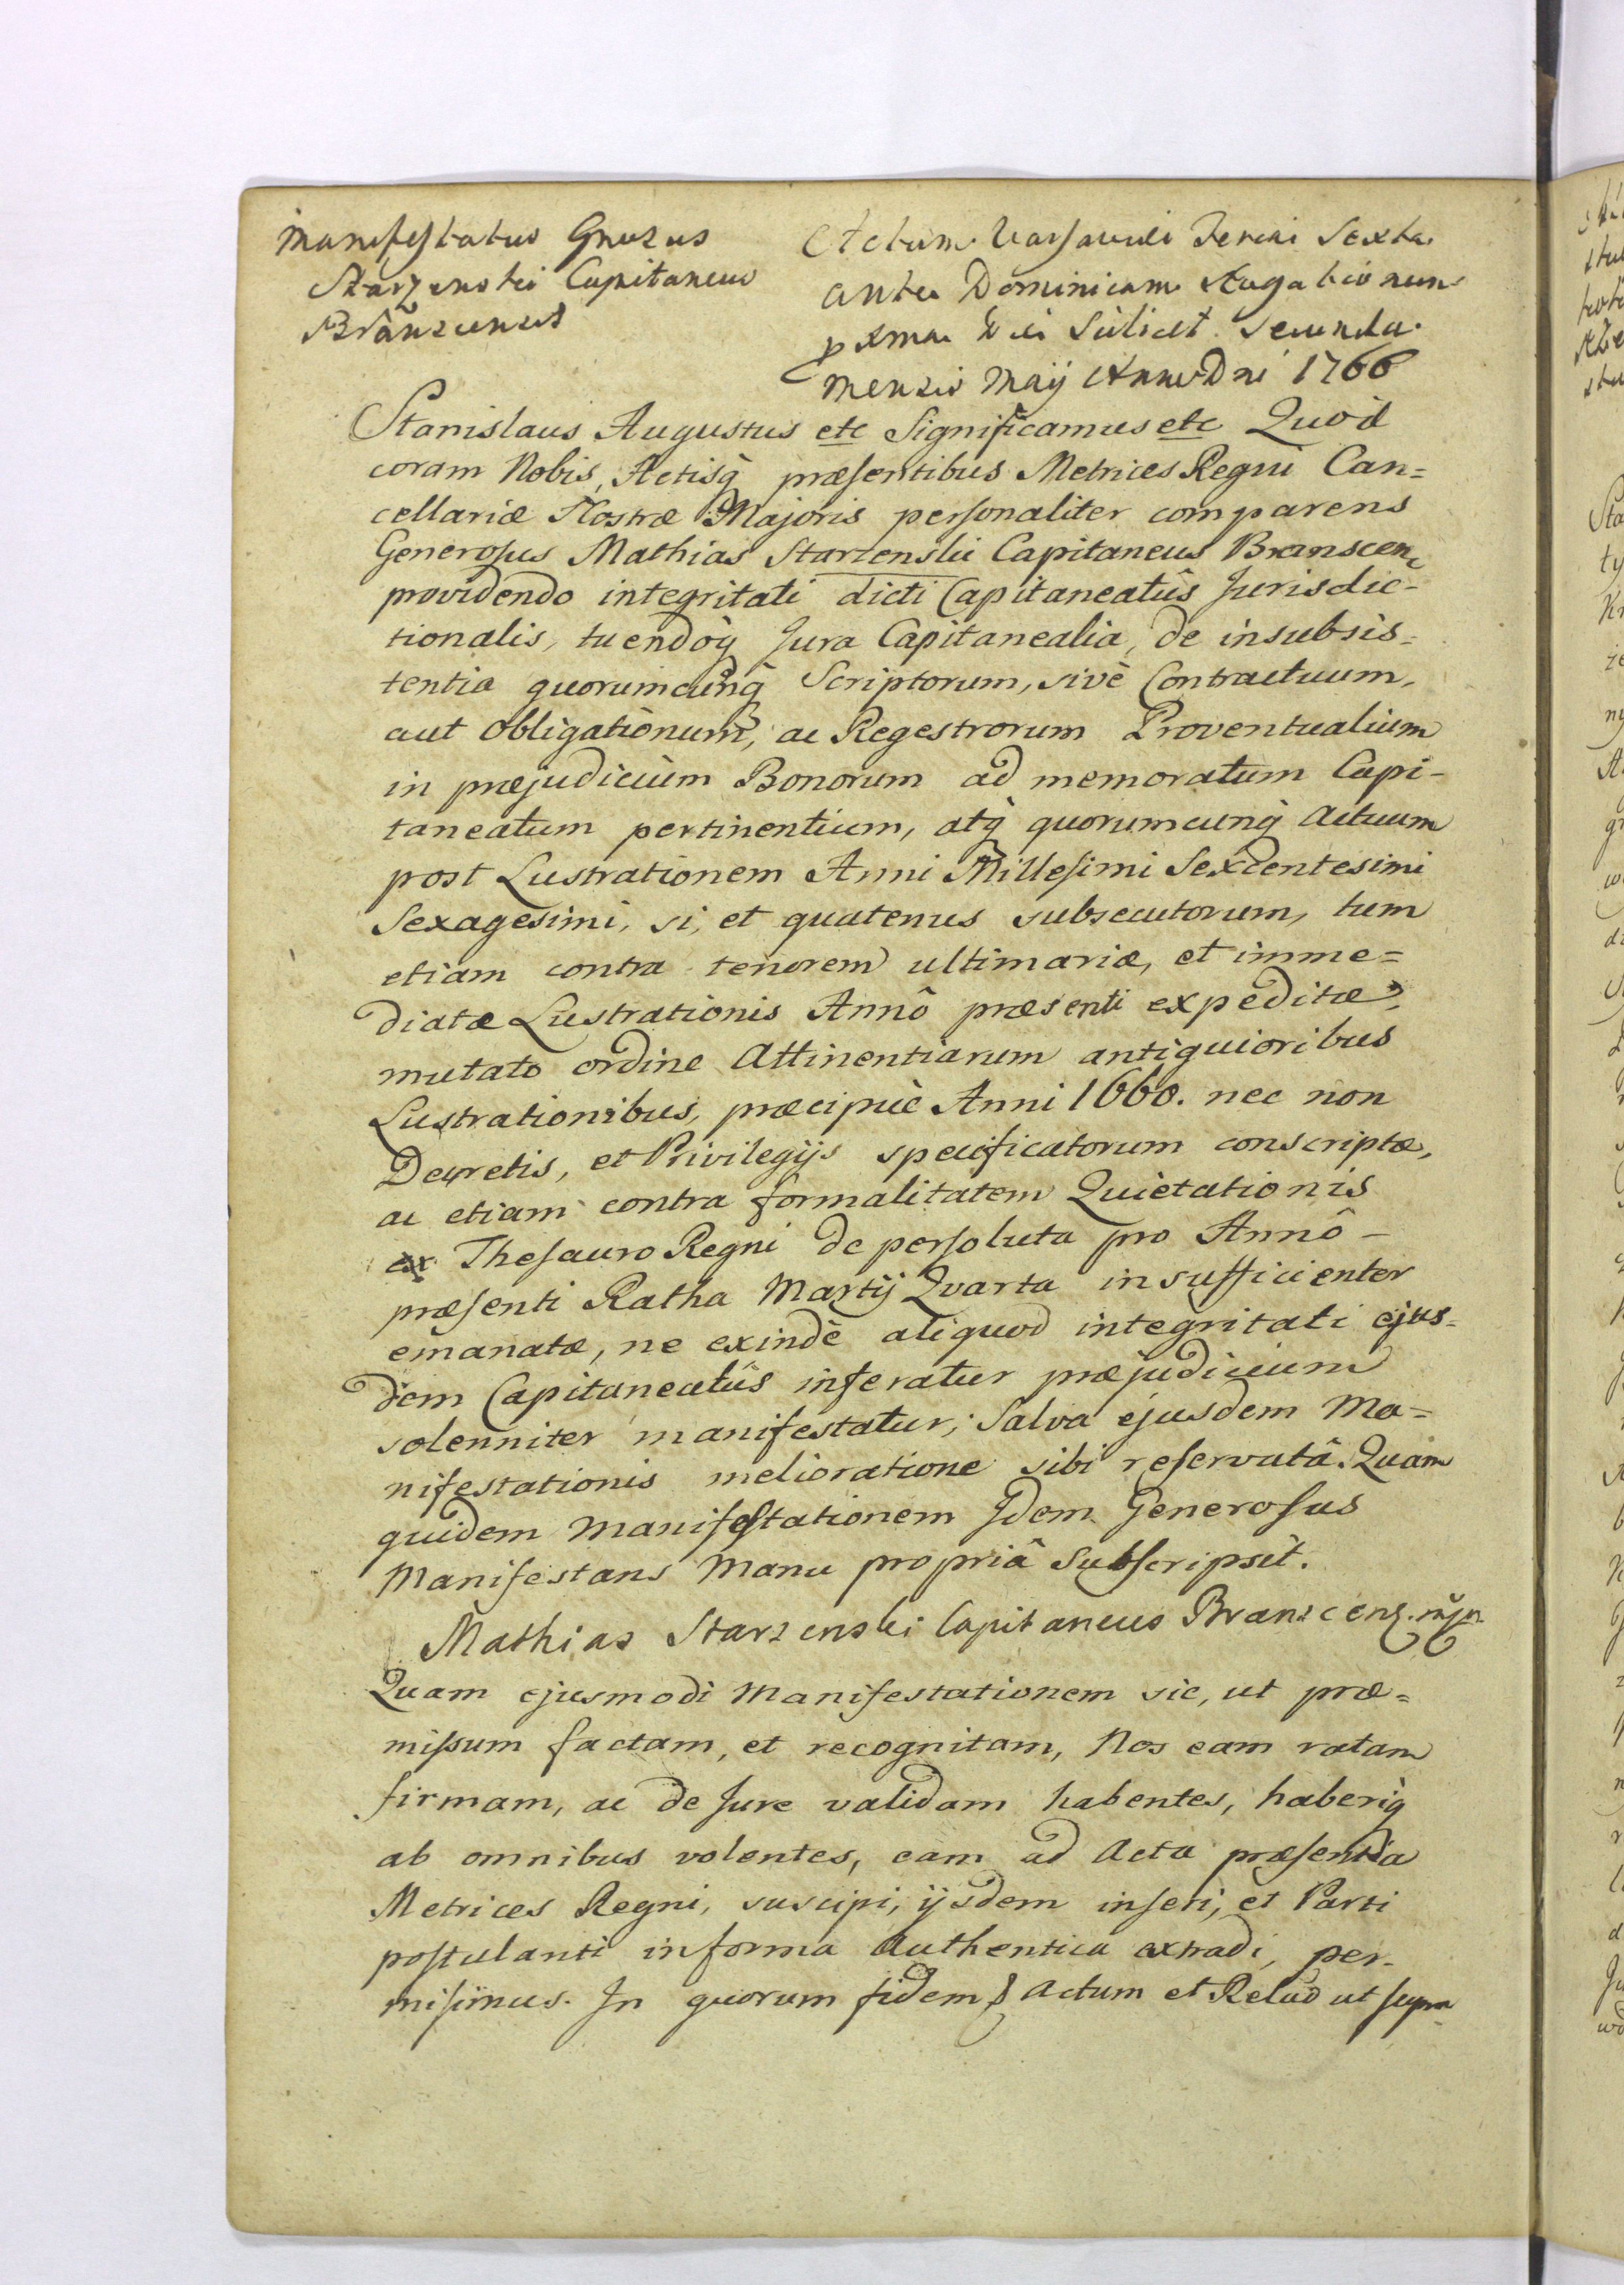 Manifestatur Gnrosus
Starzenski Capitaneus
Branscensis
Actum Varsaviæ Feria Sexta
ante Dominicam Rogationum
pxma Die Scilicet Secunda
Mensis Maij Anno Dni 1766
Stanislaus Augustus etc Significamus etc Quod
coram Nobis, Actisq̀ præsentibus Metrices Regni Can=
cellariæ Nostræ Majoris personaliter comparens
Generosus Mathias Starzenski Capitaneus Branscen
providendo integritati dicti Capitaneatûs Jurisdic-
tionalis, tuendoq̀ Jura Capitanealia, de insubsis-
tentia quorumcunq̀ Scriptorum, sivè Contractuum,
aut Obligationum, ac Regestrorum Proventualium
in præjudicium Bonorum ad memoratum Capi-
taneatum pertinentium, atq̀ quorumcunq̀ Actuum
post Lustrationem Anni Millesimi Sexcentesimi
Sexagesimi, si, et quatenus subsecutorum, tum
etiam contra tenorem ultimariæ, et imme=
diatæ Lustrationis Annô præsenti expeditæ,
mutato ordine Attinentiarum antiquioribus
Lustrationibus, præcipuè Anni 1660. nec non
Decretis, et Privilegijs specificatorum conscriptæ,
ac etiam contra formalitatem Quietationis
ex Thesauro Regni de persoluta pro Annô -
præsenti Ratha Martij Quarta insufficienter
emanatæ, ne exindè aliquod integritati ejus=
dem Capitaneatûs inferatur præjudicium
solenniter manifestatur; Salva ejusdem Ma=
nifestationis melioratione sibi reservatâ. Quam
quidem Manifestationem Idem Generosus
Manifestans Manu propriâ Subscripsit.
Mathias Starzenski Capitaneus Branscens. mp.
Quam ejusmodi Manifestationem sic, ut præ=
missum factam, et recognitam, Nos eam ratam
firmam, ac de Jure validam habentes, haberiq̀
ab omnibus volentes, eam ad Acta præsentia
Metrices Regni, suscipi, ijsdem inseri, et Parti
postulanti in forma Authentica extradi, per-
misimus. In quorum fidem & Actum et Relad ut supra